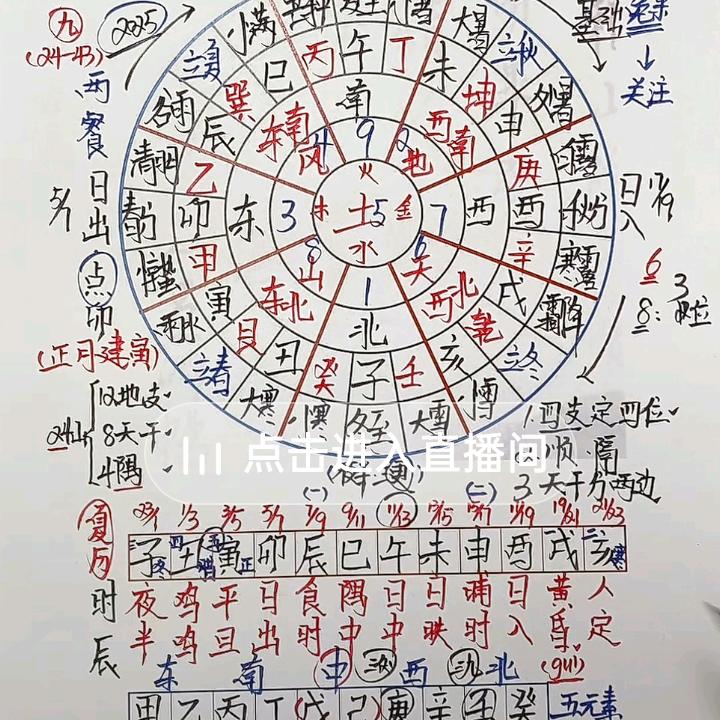 九
(24-43)
2025
两餐
5/7
日出
点卯
(正月建寅)
立夏
小满
大暑
立秋
处暑
白露
秋分
寒露
霜降
立冬
大雪
冬至
小寒
大寒
立春
雨水
惊蛰
春分
清明
谷雨
辰
巽
巳
丙
午
丁
未
坤
申
庚
酉
辛
戌
乾
亥
壬
子
癸
丑
艮
寅
甲
卯
乙
东南
南
西南
西
西北
北
东北
东
4
风
9
火
2
地
7
金
6
天
1
水
8
山
3
木
土5
基础
关注
日入
17/19
6
3
8:
24山
12地支
8天干
4隅
1. 四支定四位
2. 顺 隅
3 天干分两边
点击进入直播间
(一) (二)
23/1 1/3 3/5 5/7 7/9 9/11 11/13 13/15 15/17 17/19 19/21 21/23
子 丑 寅 卯 辰 巳 午 未 申 酉 戌 亥
夏历时辰
夜半 鸡鸣 平旦 日出 食时 隅中 日中 日昳 晡时 日入 黄昏 人定
(911)
东 南 中 西 北
甲 乙 丙 丁 (戊 己) 庚 辛 壬 癸 五元素